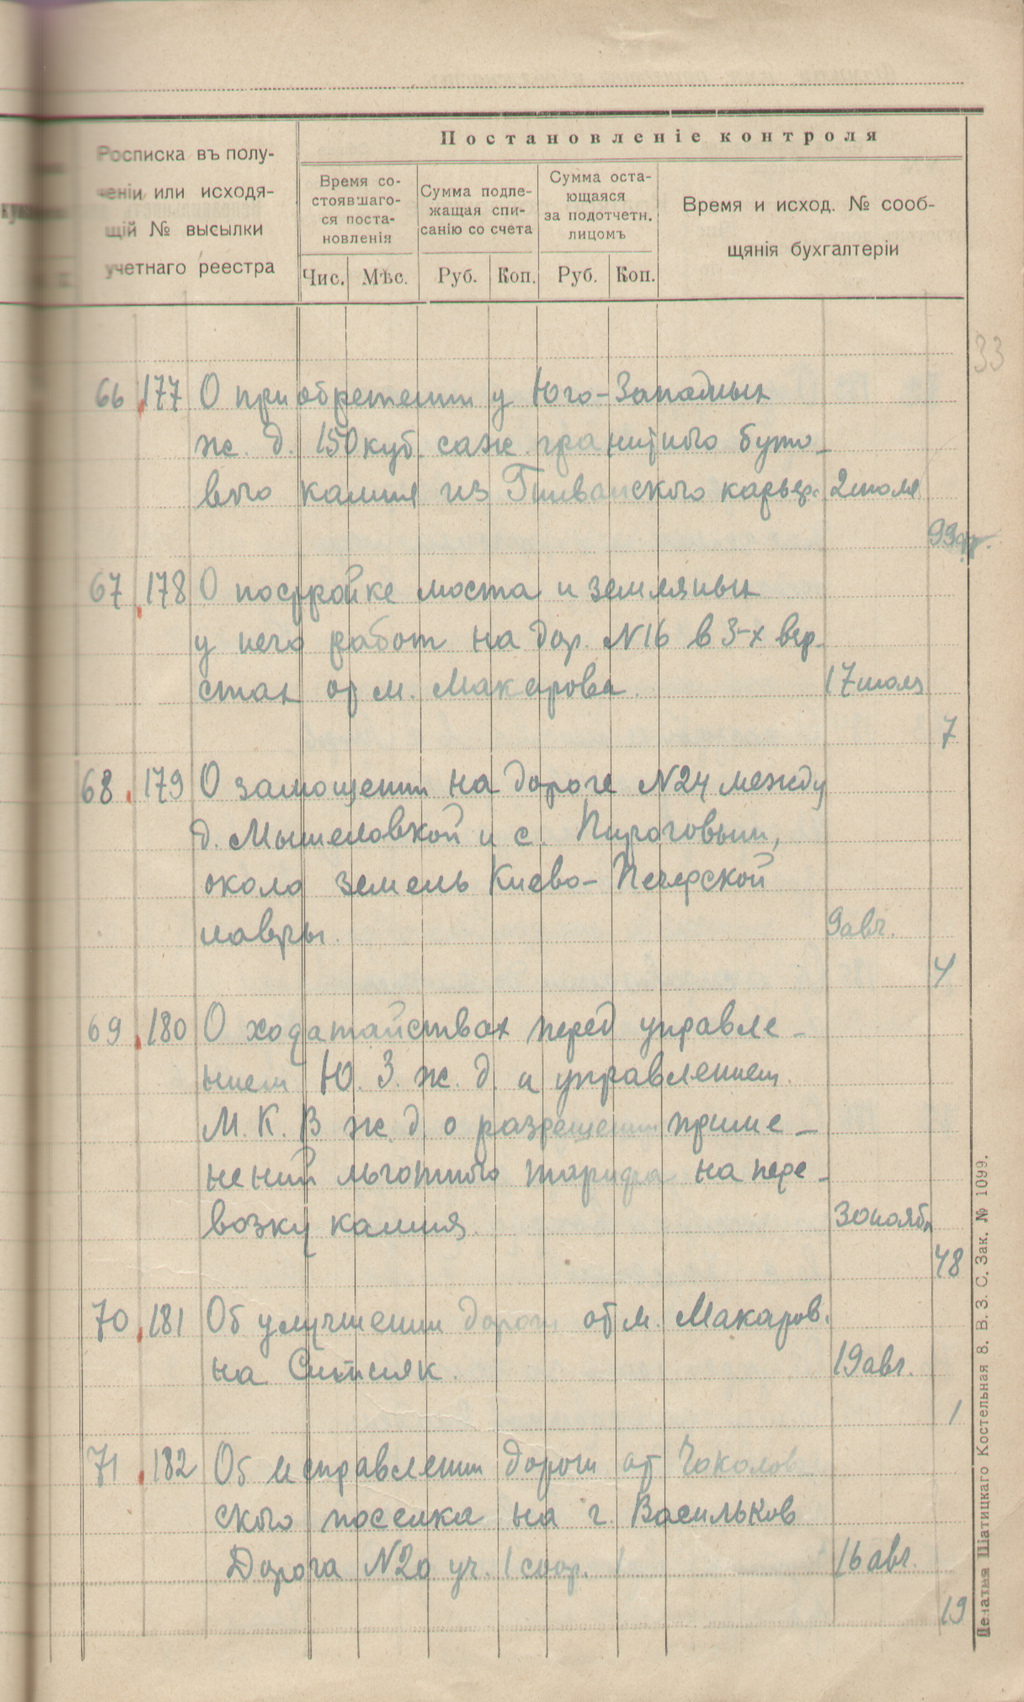 Постановленіе контроля
Росписка въ полу-
ченіи или исходя-
щій № высылки
учетнаго реестра
Время со-
стоявшаго-
ся поста-
новленія
Сумма подле-
жащая спи-
санію со счета
Сумма оста-
ющаяся
за подотчетн.
лицомъ
Время и исход. № сооб-
щянія бухгалтеріи
Чис. Мѣс. Руб. Коп. Руб. Коп.
33
66 177 О приобретении у Юго-Западных
ж. д. 150 куб. саж. гранитного буто-
вого камня из Гниванского карьер. 2 июля
99
67 178 О постройке моста и земляных
у него работ на дор. N16 в 3-х вер-
стах от м. Макарова. 17 июля
7
68 179 О замощении на дороге N24 между
д. Мышеловкой и с. Пироговым,
около земель Киево-Печерской
лавры. 9 авг.
4
69 180 О ходатайствах перед управле-
нием Ю. З. ж. д. и управлением
М. К. В ж. д. о разрешении приме-
нений льготного тарифа на пере-
возку камня. 30 ноябр
48
70 181 Об улучшении дороги от м. Макаров.
на Ситняк. 19 авг.
1
71 182 Об исправлении дороги от Чоколов
ского поселка на г. Васильков
Дорога N20 уч. 1 соор. 16 авг.
19
Печатня Шіатицкаго Костельная 8. В. З. С. Зак. № 1099.